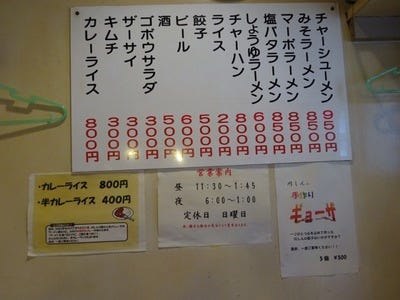 チャーシューメン 950円
みそラーメン 850円
マーボラーメン 850円
塩バタラーメン 850円
しょうゆラーメン 600円
チャーハン 800円
ライス 200円
餃子 500円
ビール 600円
酒 500円
ゴボウサラダ 300円
ザーサイ 300円
キムチ 300円
カレーライス 800円
・カレーライス 800円
・半カレーライス 400円
営業案内
昼 11:30～1:45
夜 6:00～1:00
定休日 日曜日
手作り
ギョーザ
5個 ¥500